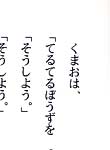 くまおは、
「てるてるぼうずを
「そうしよう。」
「そうしよう。」